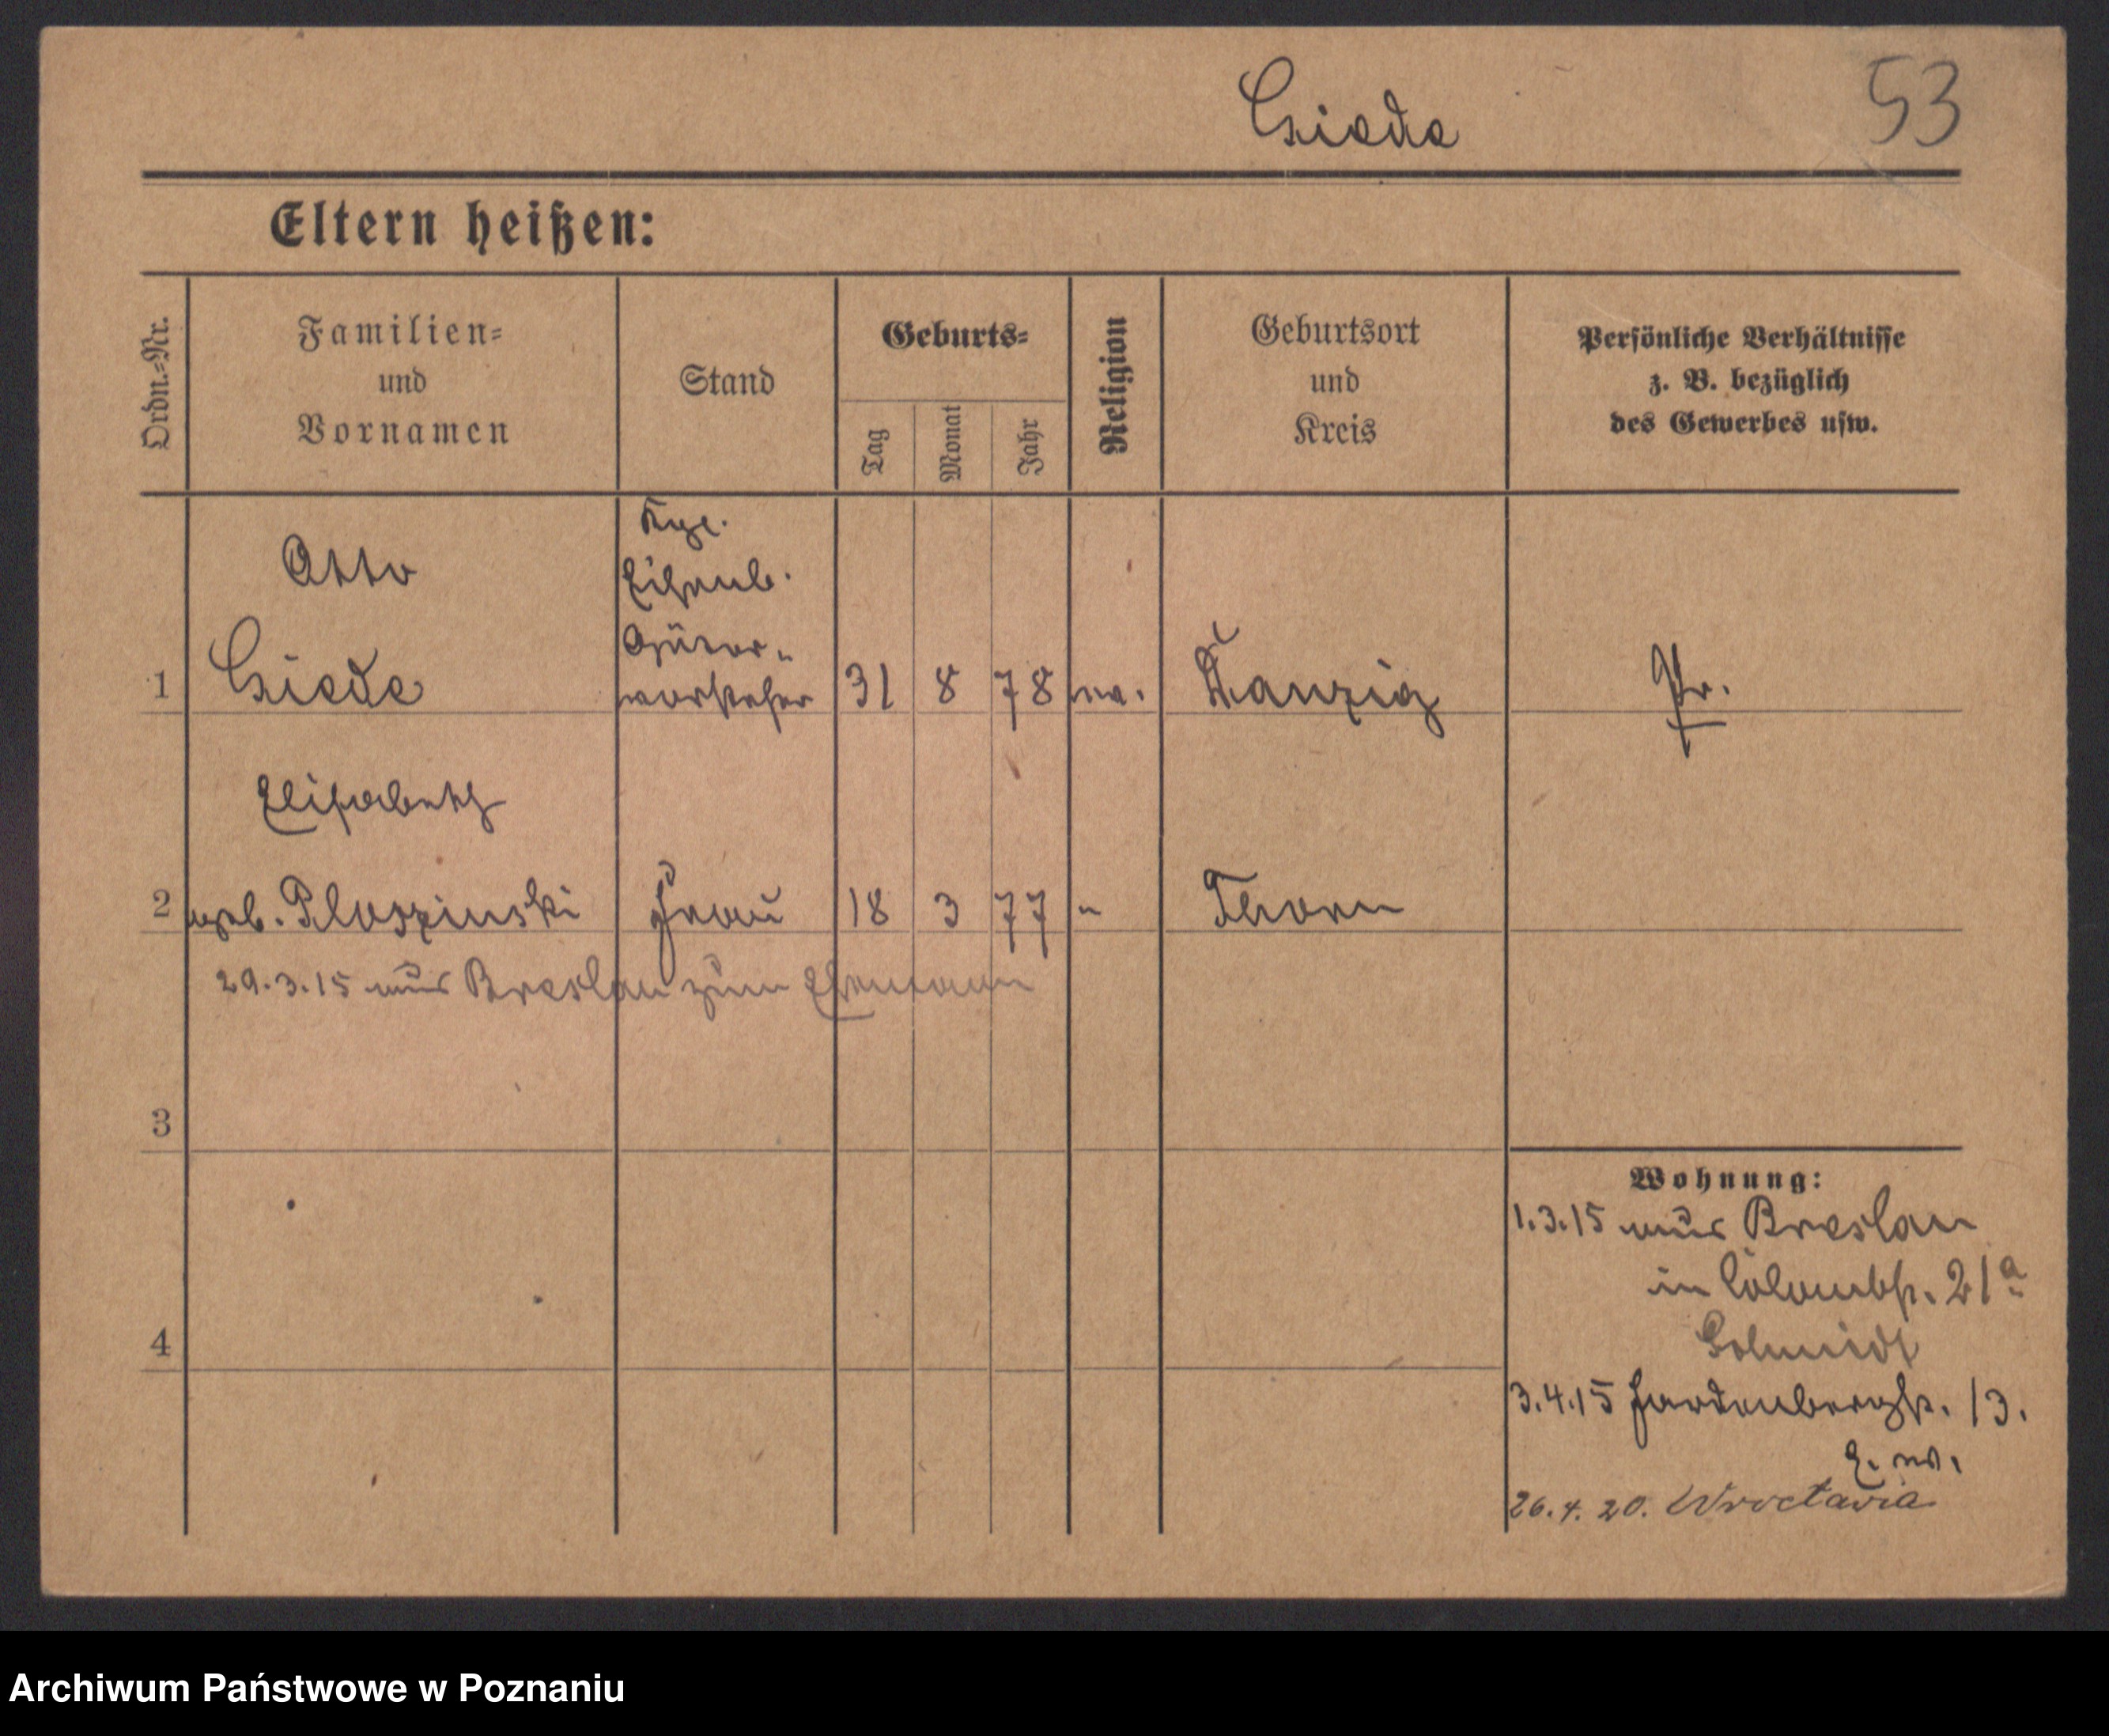 53
Eltern heißen:
Ordn.-Nr.
Familien-
und
Vornamen
Stand
Geburts-
Tag
Monat
Jahr
Religion
Geburtsort
und
Kreis
Persönliche Verhältnisse
z. B. bezüglich
des Gewerbes usw.
Otto
Kgl.
Eisenb.
Güter-
vorsteher
1 31 8 78 ev. Danzig Pr.
Elisabeth
2 geb. Ploszinski Frau 18 3 77 " Thorn
29.3.15 aus Breslau zum Ehemann
3
4
Wohnung:
1.3.15 aus Breslau
in Colombstr. 21a
Schmidt
3.4.15 Hardenbergstr. 13.
E. W.
26.4.20. Wrocławia
Archiwum Państwowe w Poznaniu